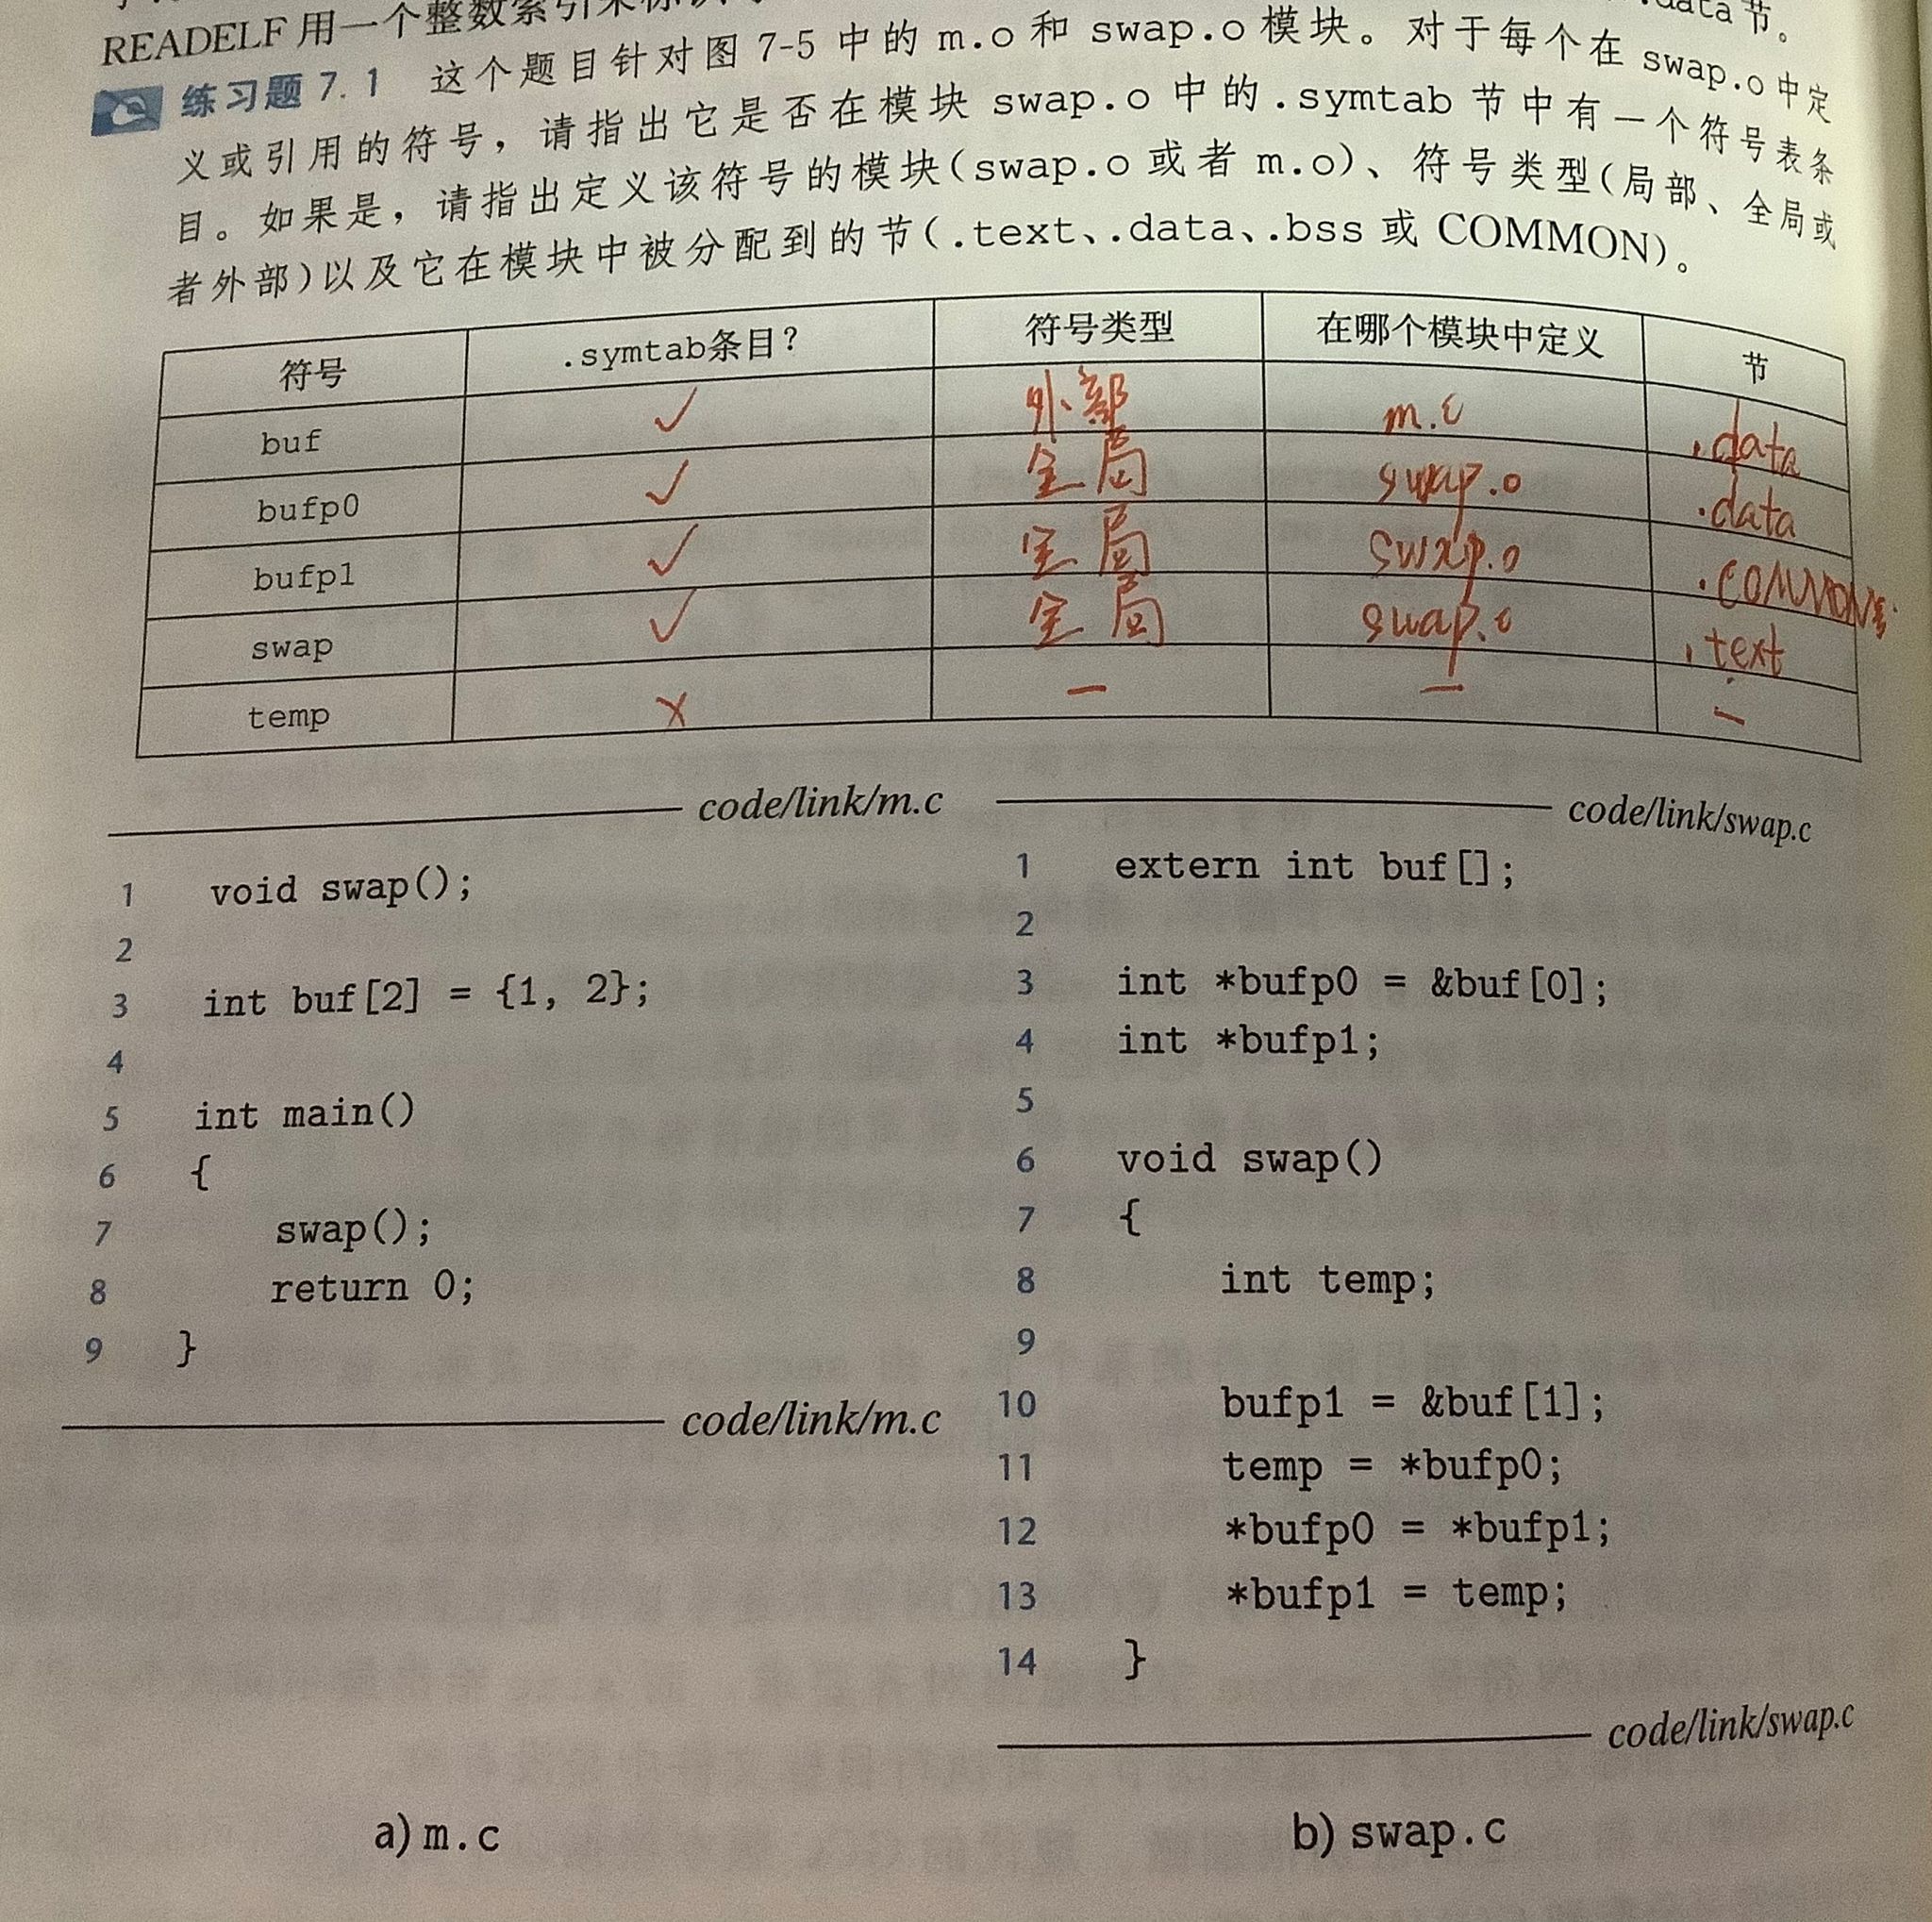 READELF 用一个整数索引来标识 .data节。
练习题 7.1 这个题目针对图 7-5 中的 m.o 和 swap.o 模块。对于每个在 swap.o 中定
义或引用的符号，请指出它是否在模块 swap.o 中的 .symtab 节中有一个符号表条
目。如果是，请指出定义该符号的模块(swap.o 或者 m.o)、符号类型(局部、全局或
者外部)以及它在模块中被分配到的节(.text、.data、.bss 或 COMMON)。
符号 .symtab条目? 符号类型 在哪个模块中定义 节
buf ✓ 外部 m.c .data
bufp0 ✓ 全局 swap.o .data
bufp1 ✓ 全局 swap.o .COMMON
swap ✓ 全局 swap.c .text
temp × — — —
code/link/m.c
1 void swap();
2
3 int buf[2] = {1, 2};
4
5 int main()
6 {
7 swap();
8 return 0;
9 }
code/link/m.c
a) m.c
code/link/swap.c
1 extern int buf[];
2
3 int *bufp0 = &buf[0];
4 int *bufp1;
5
6 void swap()
7 {
8 int temp;
9
10 bufp1 = &buf[1];
11 temp = *bufp0;
12 *bufp0 = *bufp1;
13 *bufp1 = temp;
14 }
code/link/swap.c
b) swap.c